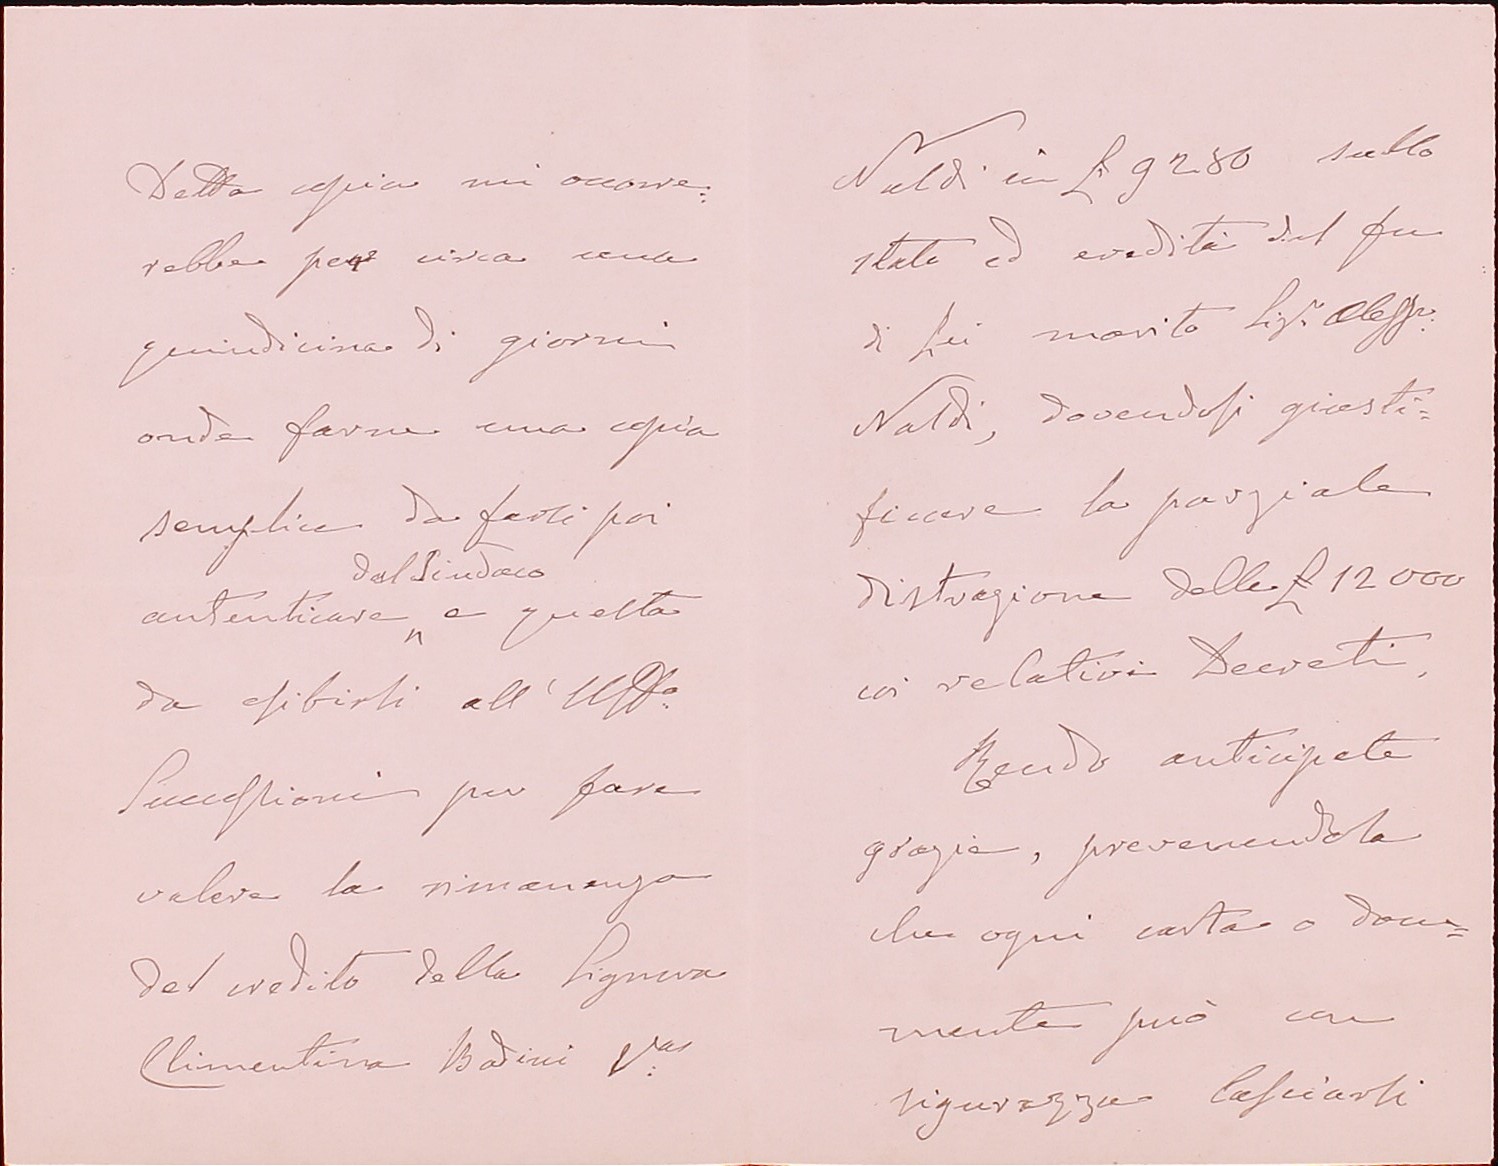 Detta copia mi occorre=
rebbe per circa una
quindicina di giorni
onde farne una copia
semplice da farsi poi
dal Sindaco
autenticare e questa
da esibirsi all'Uffo.
Successioni per fare
valere la rimanenza
del credito della Signora
Climentina Badini Va.
Naldi in £ 9280 sullo
stato ed eredità del fu
di Lei marito Sigr. Alessr.
Naldi, dovendosi giusti=
ficare la parziale
distrazione delle £ 12000
coi relativi Decreti.
Rendo anticipate
grazie, prevenendola
che ogni carta o docu=
mento può con
sigurezza lasciarsi